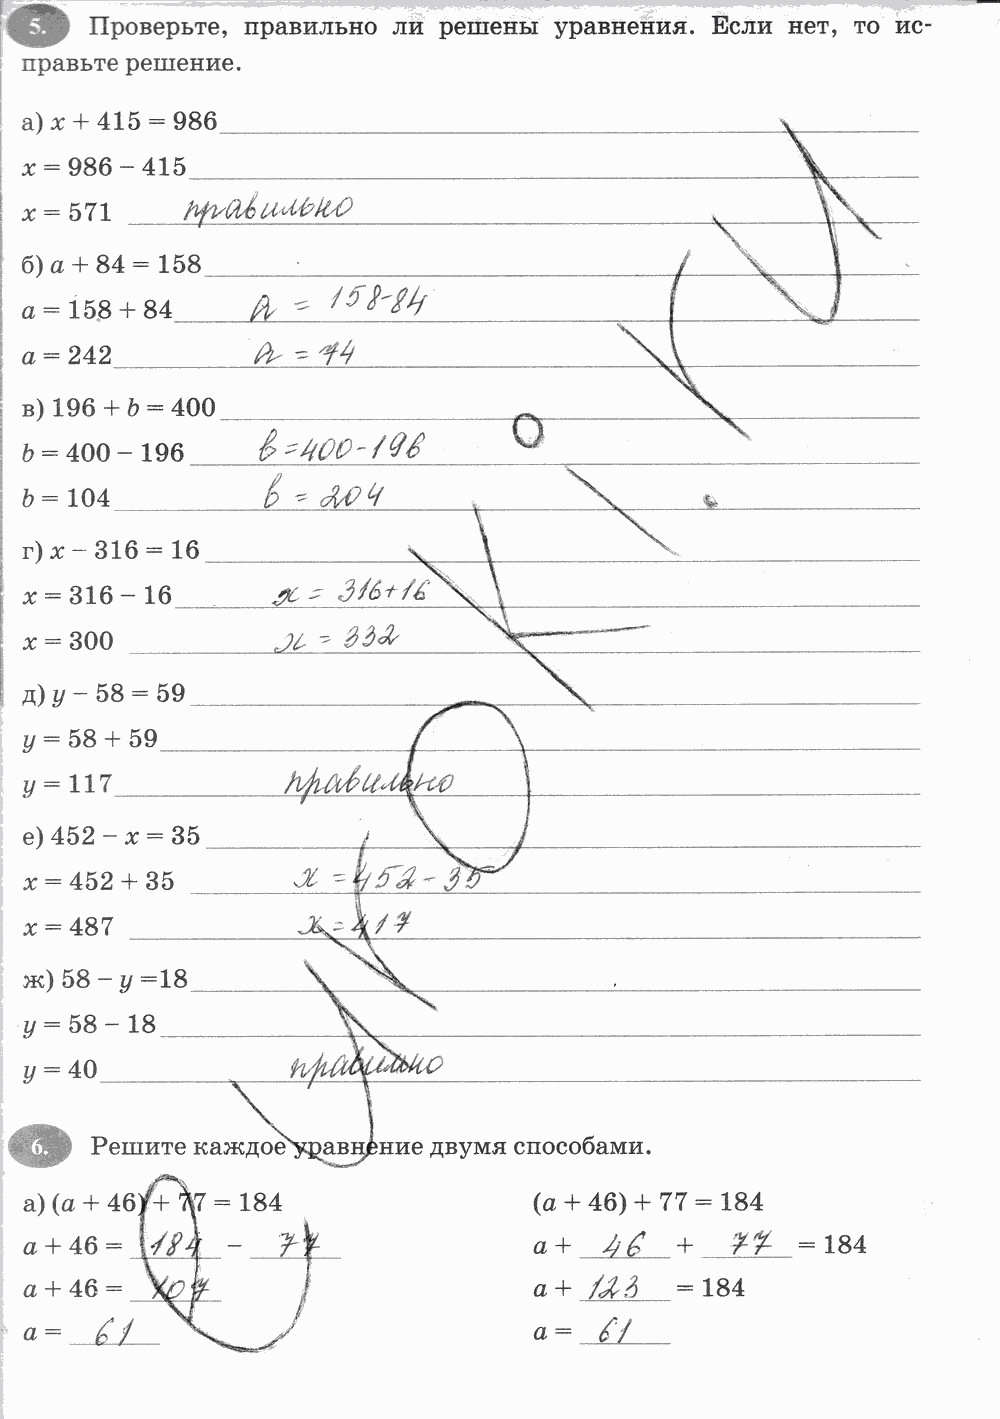 5. Проверьте, правильно ли решены уравнения. Если нет, то ис-
правьте решение.
а) x + 415 = 986
x = 986 − 415
x = 571 правильно
б) a + 84 = 158
a = 158 + 84 a = 158-84
a = 242 a = 74
в) 196 + b = 400
b = 400 − 196 в=400-196
b = 104 в = 204
г) x − 316 = 16
x = 316 − 16 x = 316+16
x = 300 x = 332
д) y − 58 = 59
y = 58 + 59
y = 117 правильно
е) 452 − x = 35
x = 452 + 35 x = 452-35
x = 487 x = 417
ж) 58 − y =18
y = 58 − 18
y = 40 правильно
6. Решите каждое уравнение двумя способами.
а) (a + 46) + 77 = 184
a + 46 = 184 − 77
a + 46 = 107
a = 61
(a + 46) + 77 = 184
a + 46 + 77 = 184
a + 123 = 184
a = 61